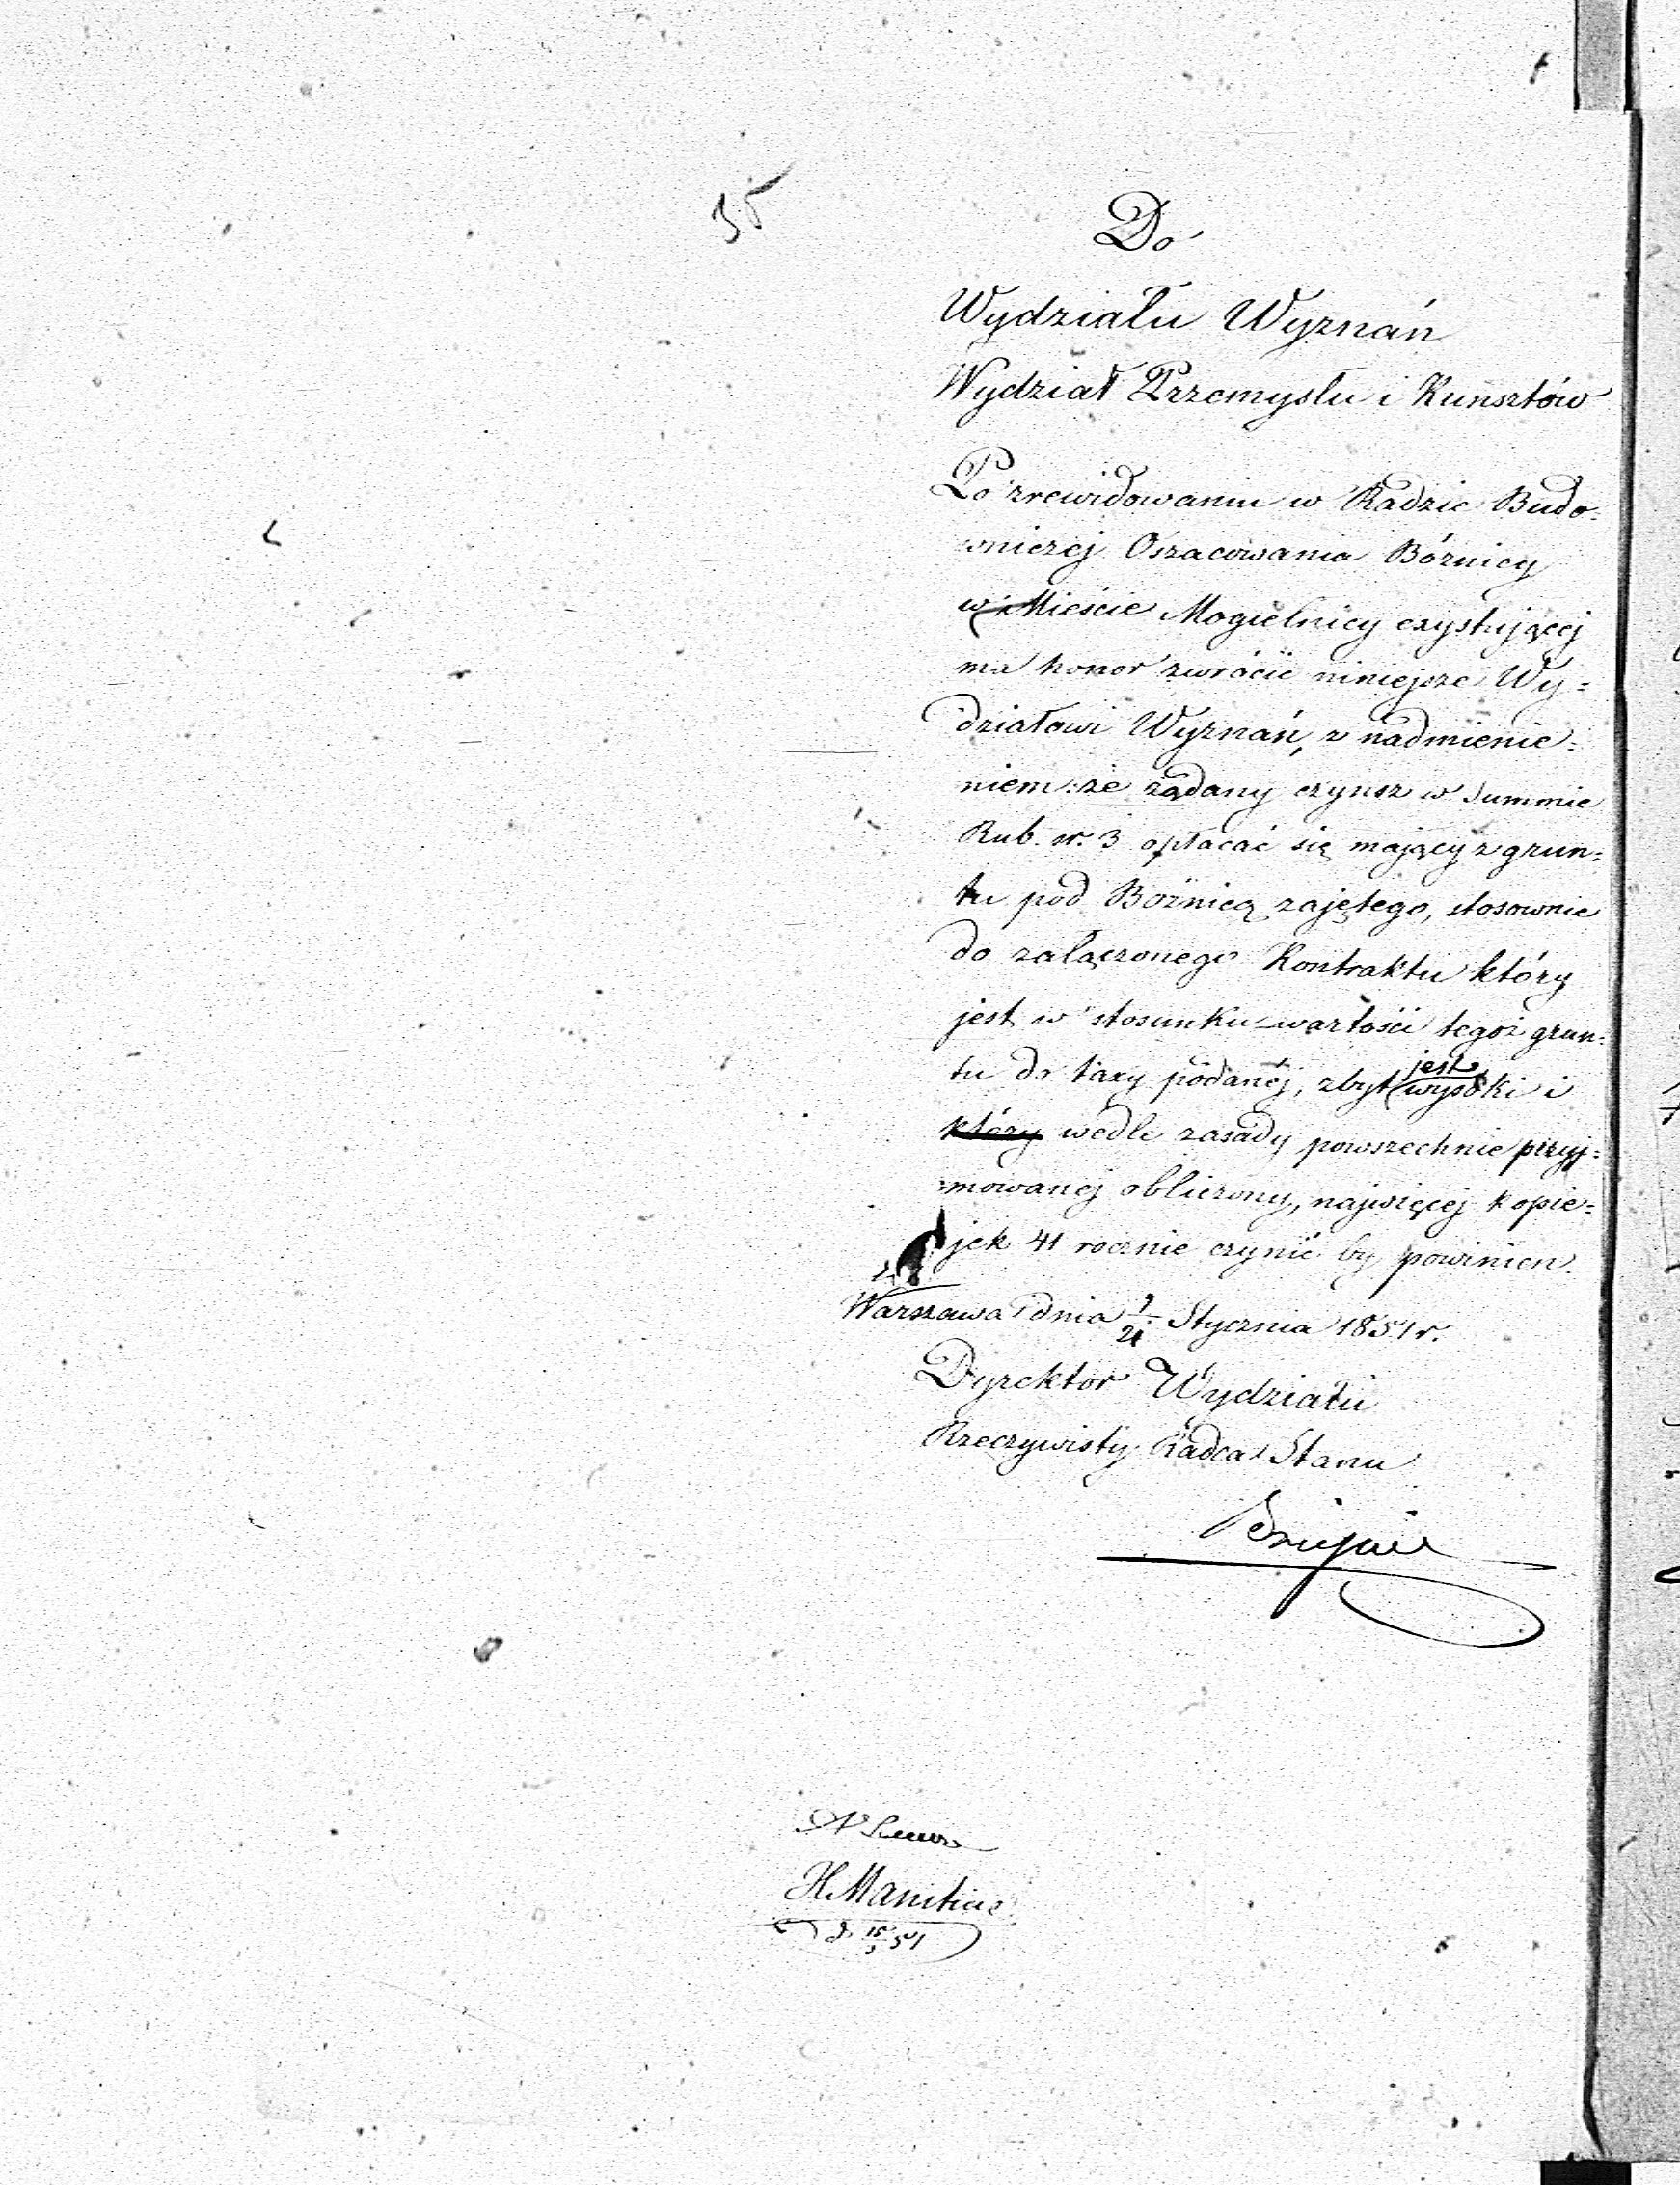 35
Do
Wydziału Wyznań
Wydział Przemysłu i Kunsztów
Po zrewidowaniu w Radzie Budo=
wniczej Oszacowania Bóżnicy
w Mieście Mogielnicy exystującej
ma honor zwrócić niniejsze Wy=
działowi Wyznań, z nadmienie=
niem: że żądany czynsz w Summie
Rub. sr. 3 opłacać się mający z grun=
tu pod Bóżnicą zajętego, stosownie
do załączonego Kontraktu który
jest w stosunku wartości tegoż grun=
tu do taxy podanéj, zbyt wysoki i
jest
który wedle zasady powszechnie przyj=
mowanej obliczony, najwięcej kopie=
jek 41 rocznie czynić by powinien.
Warszawa dnia 9/21 Stycznia 1851 r.
Dyrektor Wydziału
Rzeczywisty Radca Stanu
H. Manitius